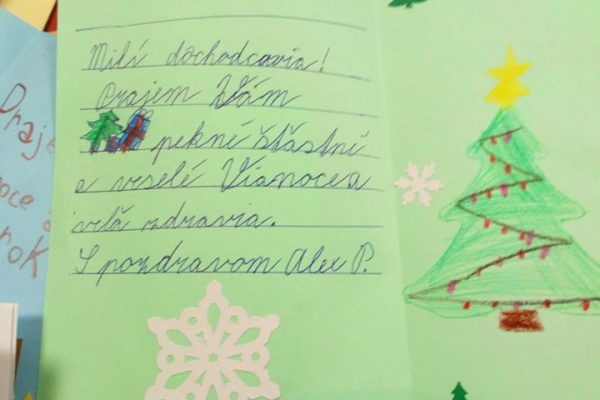 Milí dochodcovia!
Prajem Vám
pekné štastné
a veselé Vianoce a
vela zdravia.
S pozdravom Alex P.
Praje
noce a
rok